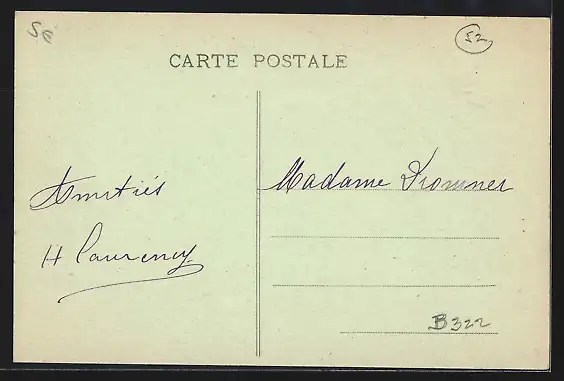 5€
52
CARTE POSTALE
Amitiés
H Laurency
Madame Frommer
B322